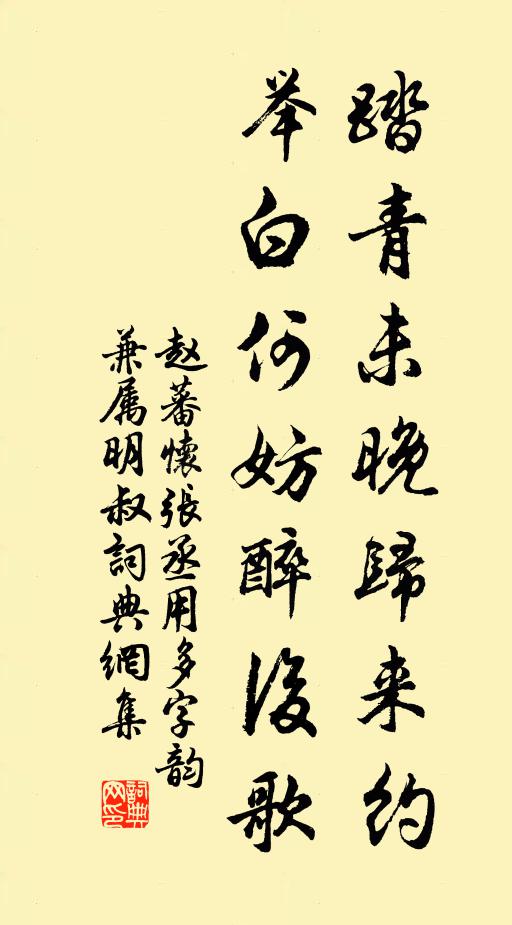 踏青未晚歸来約
举白何妨醉後歌
赵蕃懷張丞用多字韵
兼属明叔詞典網集
詞典网印